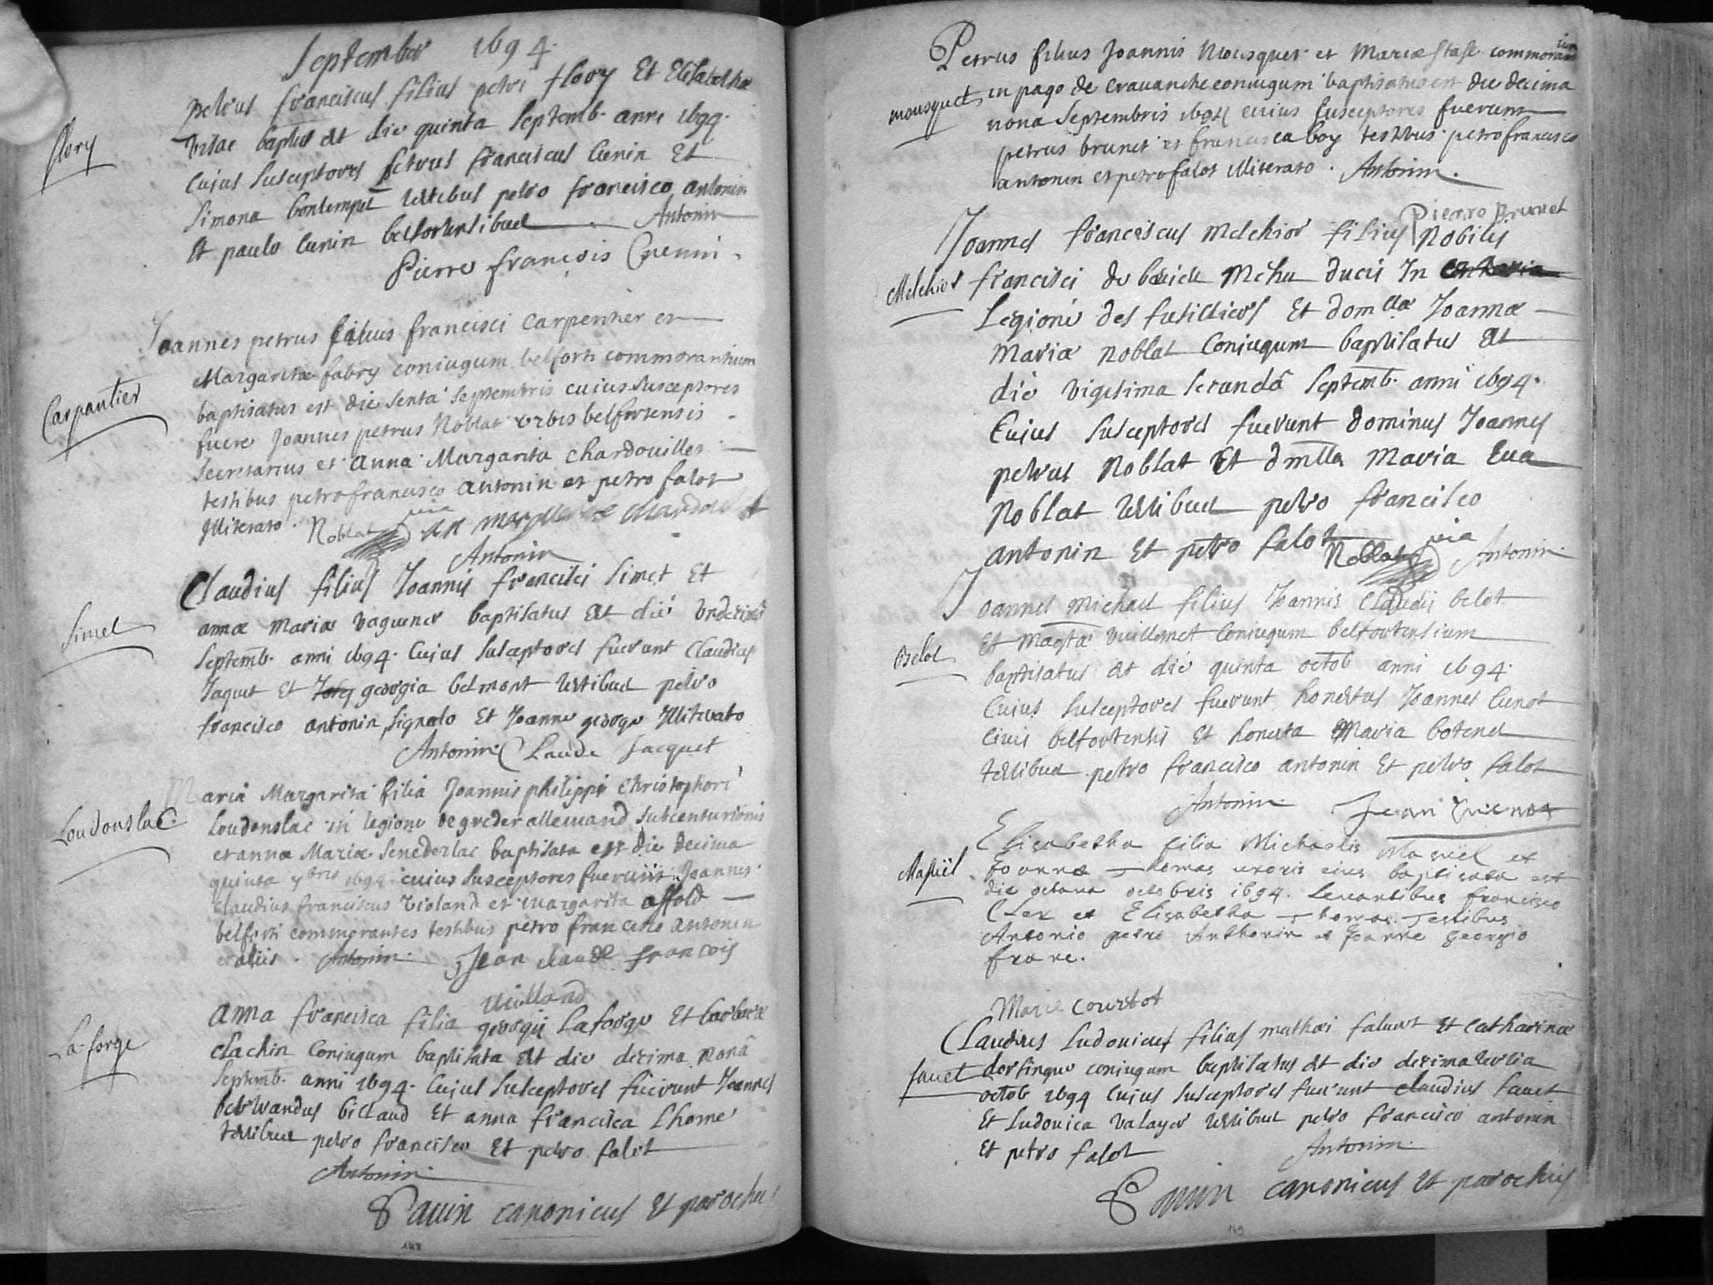 September 1694.
flory
petrus franciscus filius petri flory Et Elisabethæ
baptus est die quinta Septemb. anni 1694.
Cujus Susceptores petrus franciscus Cunin Et
Simona bontempst testibus petro francisco antonin
Et paulo Cunin belfortensibus Antonin
Pierre françois Quenin.
Carpantier
Joannes petrus filius francisci Carpentier et
Margaritæ fabry coniugum belforti commorantium
baptisatus est die senta Septembris cuius susceptores
fuere Joannes petrus Noblat urbis belfortensis
Secretarius et Anna Margarita chardouillet
testibus petro francisco antonin et petro falot
Illiterato. Noblat
Antonin
Simet
Claudius filius Joannis francisci Simet Et
annæ mariæ vaguener baptisatus est die undecimâ
Septemb. anni 1694. Cujus Susceptores fuerunt Claudius
Jaquet Et georgia belmont testibus petro
francisco antonin, signato Et Joanne george Illiterato
Antonin Claude Jacquet
Loudonslac.
Maria Margarita filia Joannis philippi Christophori
Loudonslac in legione de greder allemand Subcenturionis
et annæ Mariæ Senederlac baptisata est die decima
quinta 7bris 1694. cuius susceptores fuerunt Joannes
claudius franciscus violand et margarita affold
belforti commorantes testibus petro francisco antonin
et aliis. Antonin. Jean claude francois
viilland
La-forge
Anna francisca filia georgii Laforge Et barbaræ
clachin Coniugum baptisata est die decima nonâ
Septemb. anni 1694. Cujus Susceptores fuerunt Joannes
bertrandus billaud Et anna francisca Lhome
testibus petro francisco Et petro falot
Antonin.
Cauin canonicus Et parochus
mousquet
Petrus filius Joannis Mousquet et Mariæ Stasse commorantium
in pago de Cravanche coniugum baptisatus est die decima
nona Septembris 1694 cuius Susceptores fuerunt
petrus brunet et francisca boy testibus petro francisco
antonin et petro falot illiterato. Antonin.
Pierro Brunet
Melchior
Joannes franciscus Melchior filius Nobilis
francisci de Mchu ducis In
Legione des fusilliers Et domllæ Joannæ
Mariæ Noblat Coniugum baptisatus Est
die vigesima secundâ Septemb. anni 1694.
Cujus Susceptores fuerunt dominus Joannes
petrus Noblat Et dmlla Maria Eua
Noblat testibus petro francisco
antonin Et petro falot Noblat Antonin
Belot
Joannes Michael filius Joannis Claudii belot
Et Magtæ vuillemet Coniugum belfortensium
baptisatus est die quinta octob anni 1694.
Cuius Susceptores fuerunt honestus Joannes Cunot
Civis belfortensis Et honesta Maria botenet
testibus petro francisco antonin Et petro falot
Antonin Jean Quenot
Masuel
Elisabetha filia Michaelis Masüel et
Joannæ Thomas uxoris eius baptisata est
die octava octobris 1694. Levantibus francisco
Clex et Elisabetha Thomas. Testibus
Antonio petro Anthonin et Joanne georgio
frare.
Marie Courtot
fauet
Claudius Ludovicus filius mathæi fauet Et Catharinæ
dorsinque coniugum baptisatus est die decima tertia
octob 1694 Cujus Susceptores fuerunt claudius fauet
Et Ludovica valayer testibus petro francisco antonin
Et petro falot Antonin.
Cauin canonicus Et parochus